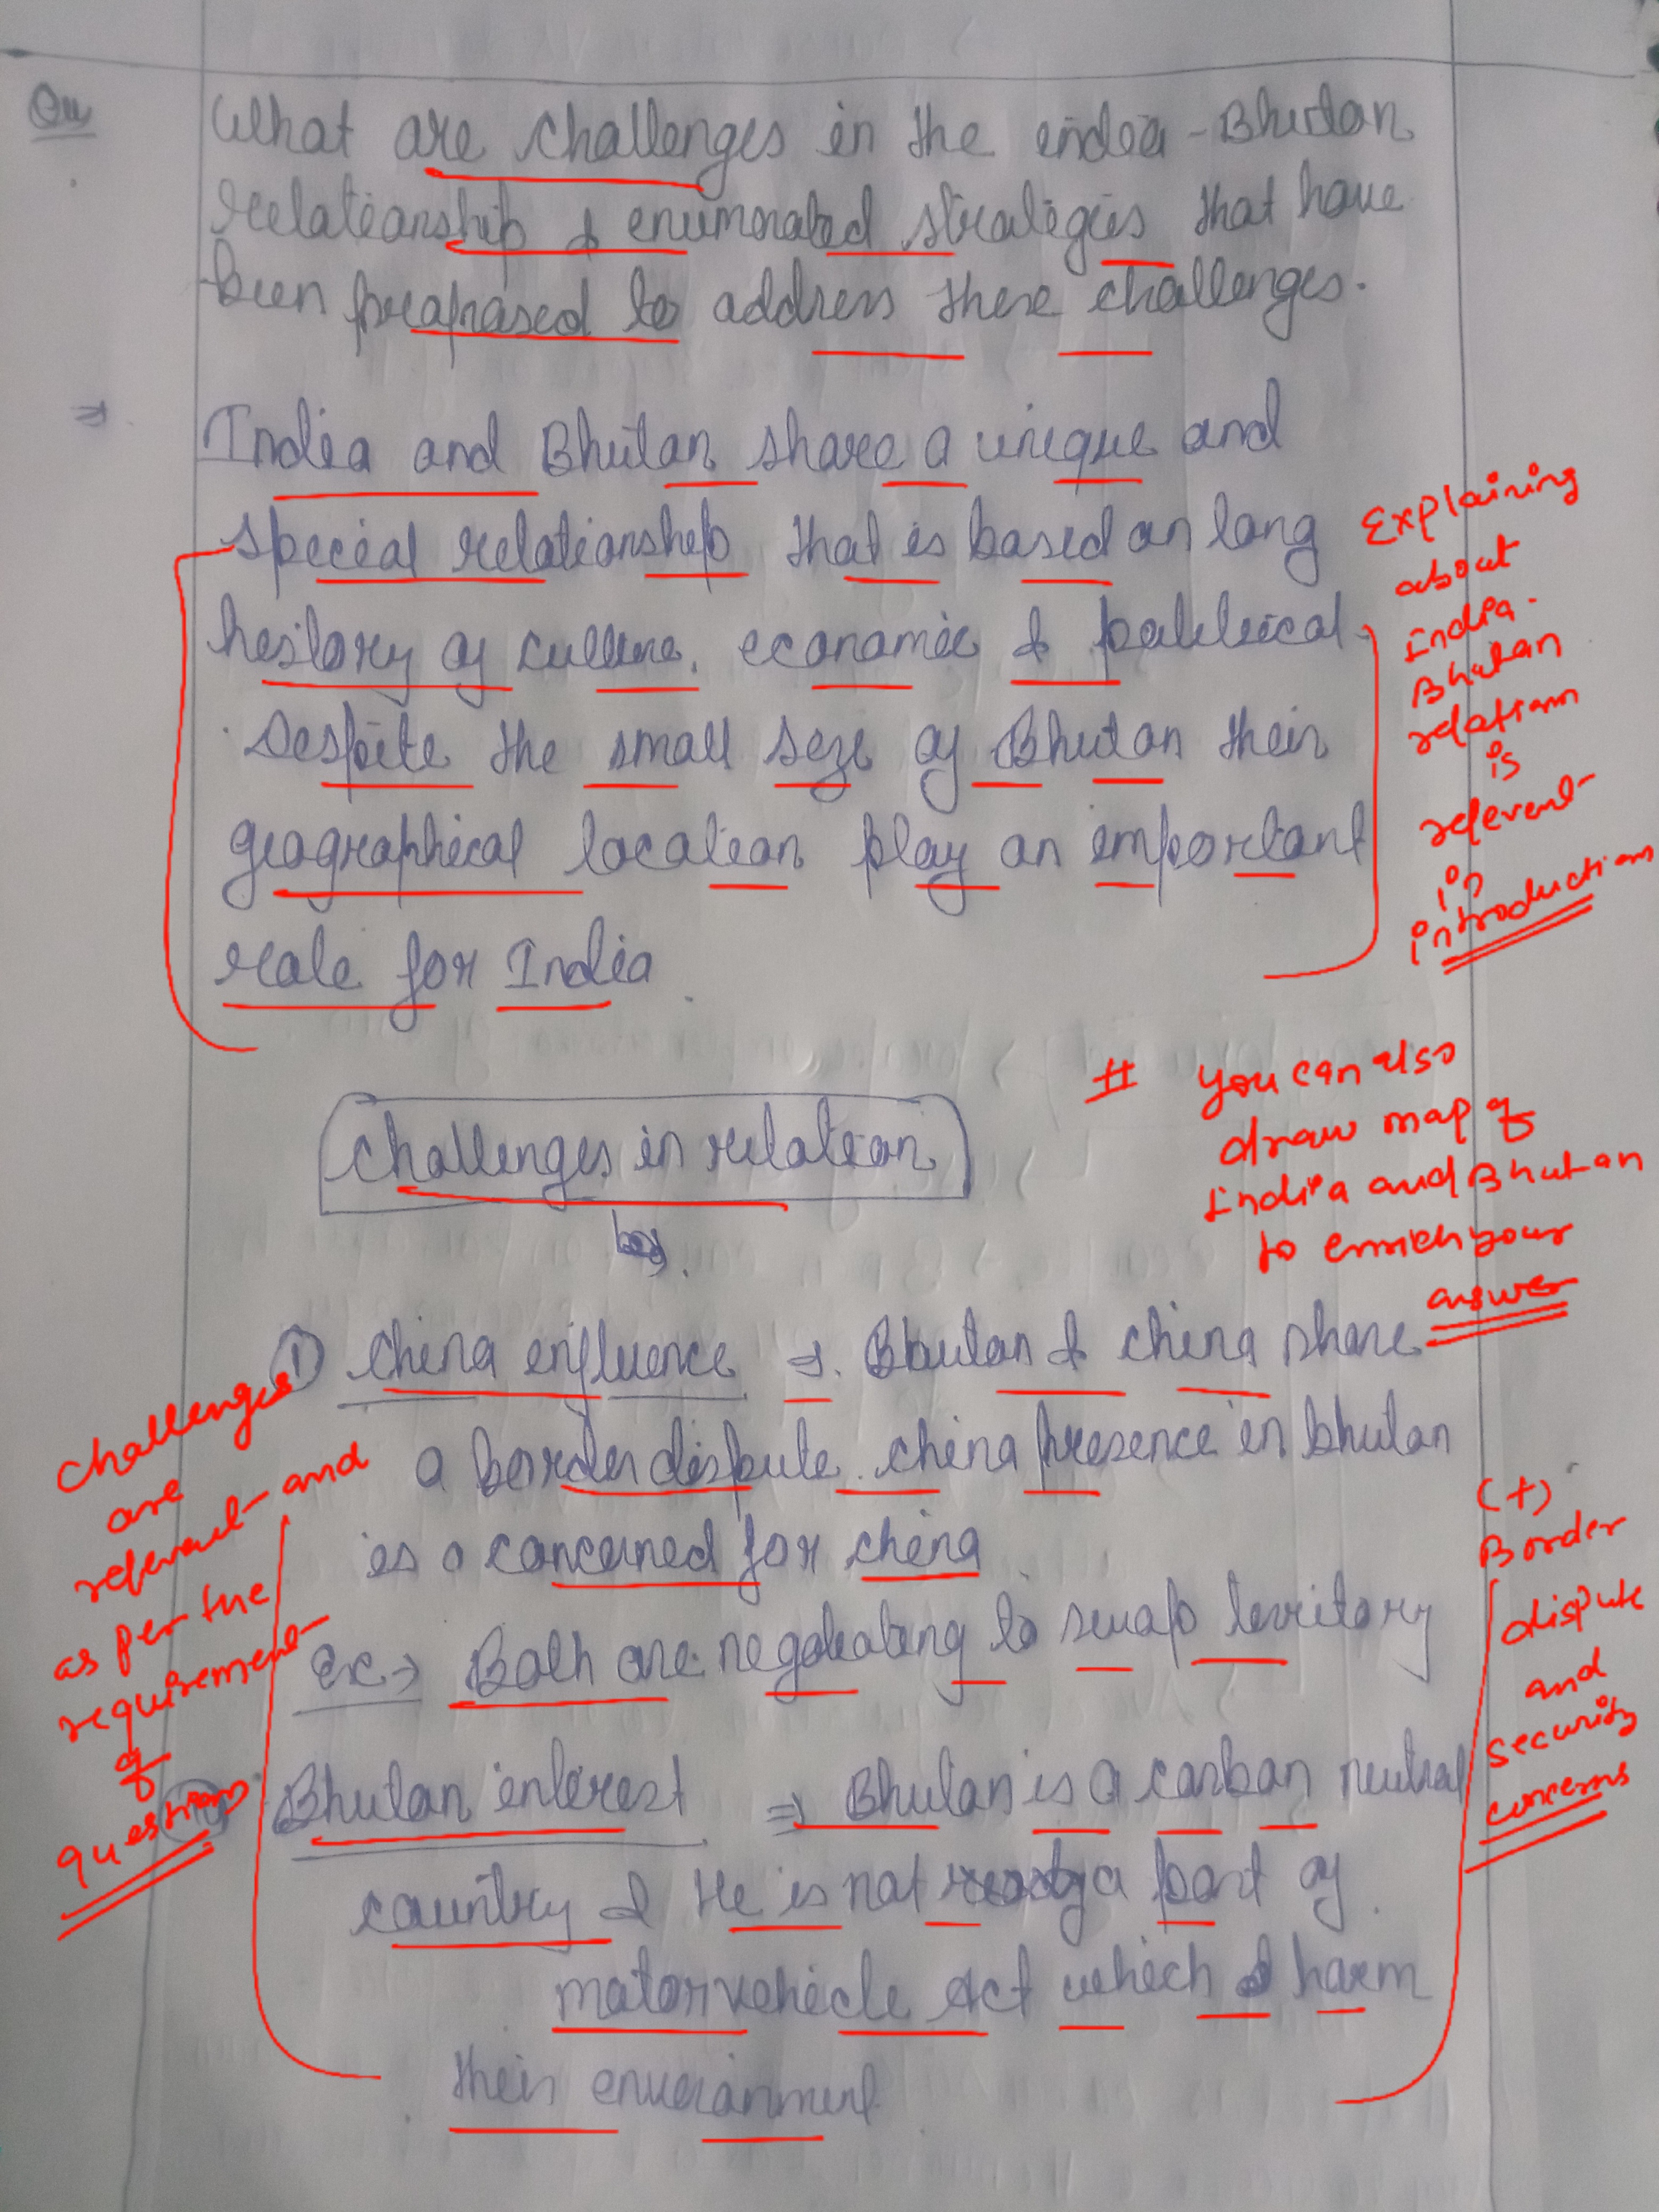 Qu
What are challenges in the india - Bhutan
relationship & enumerated strategies that have
been proposed to address these challenges.
⇒ India and Bhutan share a unique and
special relationship that is based on long
history of culture, economic & political
Despite the small size of Bhutan their
geographical location play an important
role for India.
Explaining
about
India-
Bhutan
relation
is
relevant
in
introduction
# You can also
draw map of
India and Bhutan
to enrich your
answer
Challenges in relation
① China influence ⇒ Bhutan & China share
a border dispute. China presence in bhutan
is a concerned for china
ex→ Both are negotiating to swap territory
Bhutan interest ⇒ Bhutan is a carbon neutral
country & He is not a part of
motor vehicle Act which harm
their environment
Challenges
are
relevant and
as per the
requirement
of
question
(+)
Border
dispute
and
security
concerns